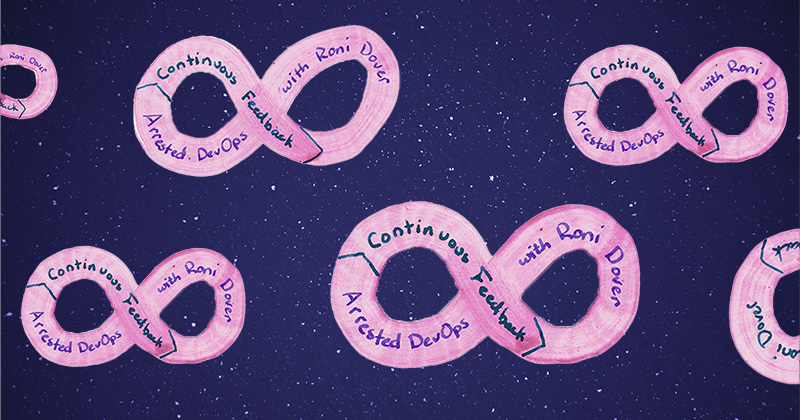 Roni Dover
back
Continuous Feedback
with Roni Dover
Arrested DevOps
Continuous Feedback
with Roni Dover
Arrested DevOps
Continuous Feedback
with Roni Dover
Arrested DevOps
Continuous Feedback
with Roni Dover
Arrested DevOps
back
oni Dover